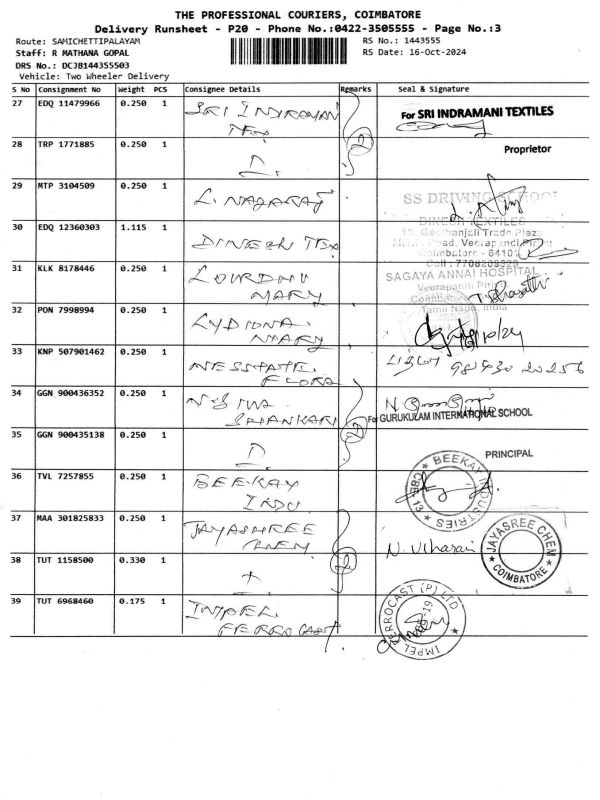 THE PROFESSIONAL COURIERS, COIMBATORE
Delivery Runsheet - P20 - Phone No.:0422-3505555 - Page No.:3
Route: SAMICHETTIPALAYAM
RS No.: 1443555
Staff: R MATHANA GOPAL
RS Date: 16-Oct-2024
DRS No.: DCJB144355503
Vehicle: Two Wheeler Delivery
S No Consignment No Weight PCS Consignee Details Remarks Seal & Signature
27 EDQ 11479966 0.250 1 SRI
2
For SRI INDRAMANI TEXTILES
28 TRP 1771885 0.250 1
Proprietor
29 MTP 3104509 0.250 1 L. NAGARAJ
SS DRIVING SCHOOL
30 EDQ 12360303 1.115 1 DINESH TEX
DINESH TEXTILES
Geethanjali Trade Plaza
Road, Veerapandi Pirivu
Coimbatore - 64101
Cell : 7708209329
31 KLK 8178446 0.250 1 LOURDHU
MARY
SAGAYA ANNAI HOSPITAL
Veerapandi Pirivu
Tamil Nadu, India
32 PON 7998994 0.250 1 LYDIONA
MARY
33 KNP 507901462 0.250 1
FLORA
34 GGN 900436352 0.250 1
SHANKARI
2
For GURUKULAM INTERNATIONAL SCHOOL
35 GGN 900435138 0.250 1
PRINCIPAL
36 TVL 7257855 0.250 1 BEEKAY
INDU
BEEKAY INDUSTRIES
CBE 13
37 MAA 301825833 0.250 1 JAYASHREE
CHEM
2
N. Viharai
JAYASREE CHEM
COIMBATORE
38 TUT 1158500 0.330 1
39 TUT 6968460 0.175 1 IMPEL
FERRO CAST
IMPEL FERROCAST (P) LTD